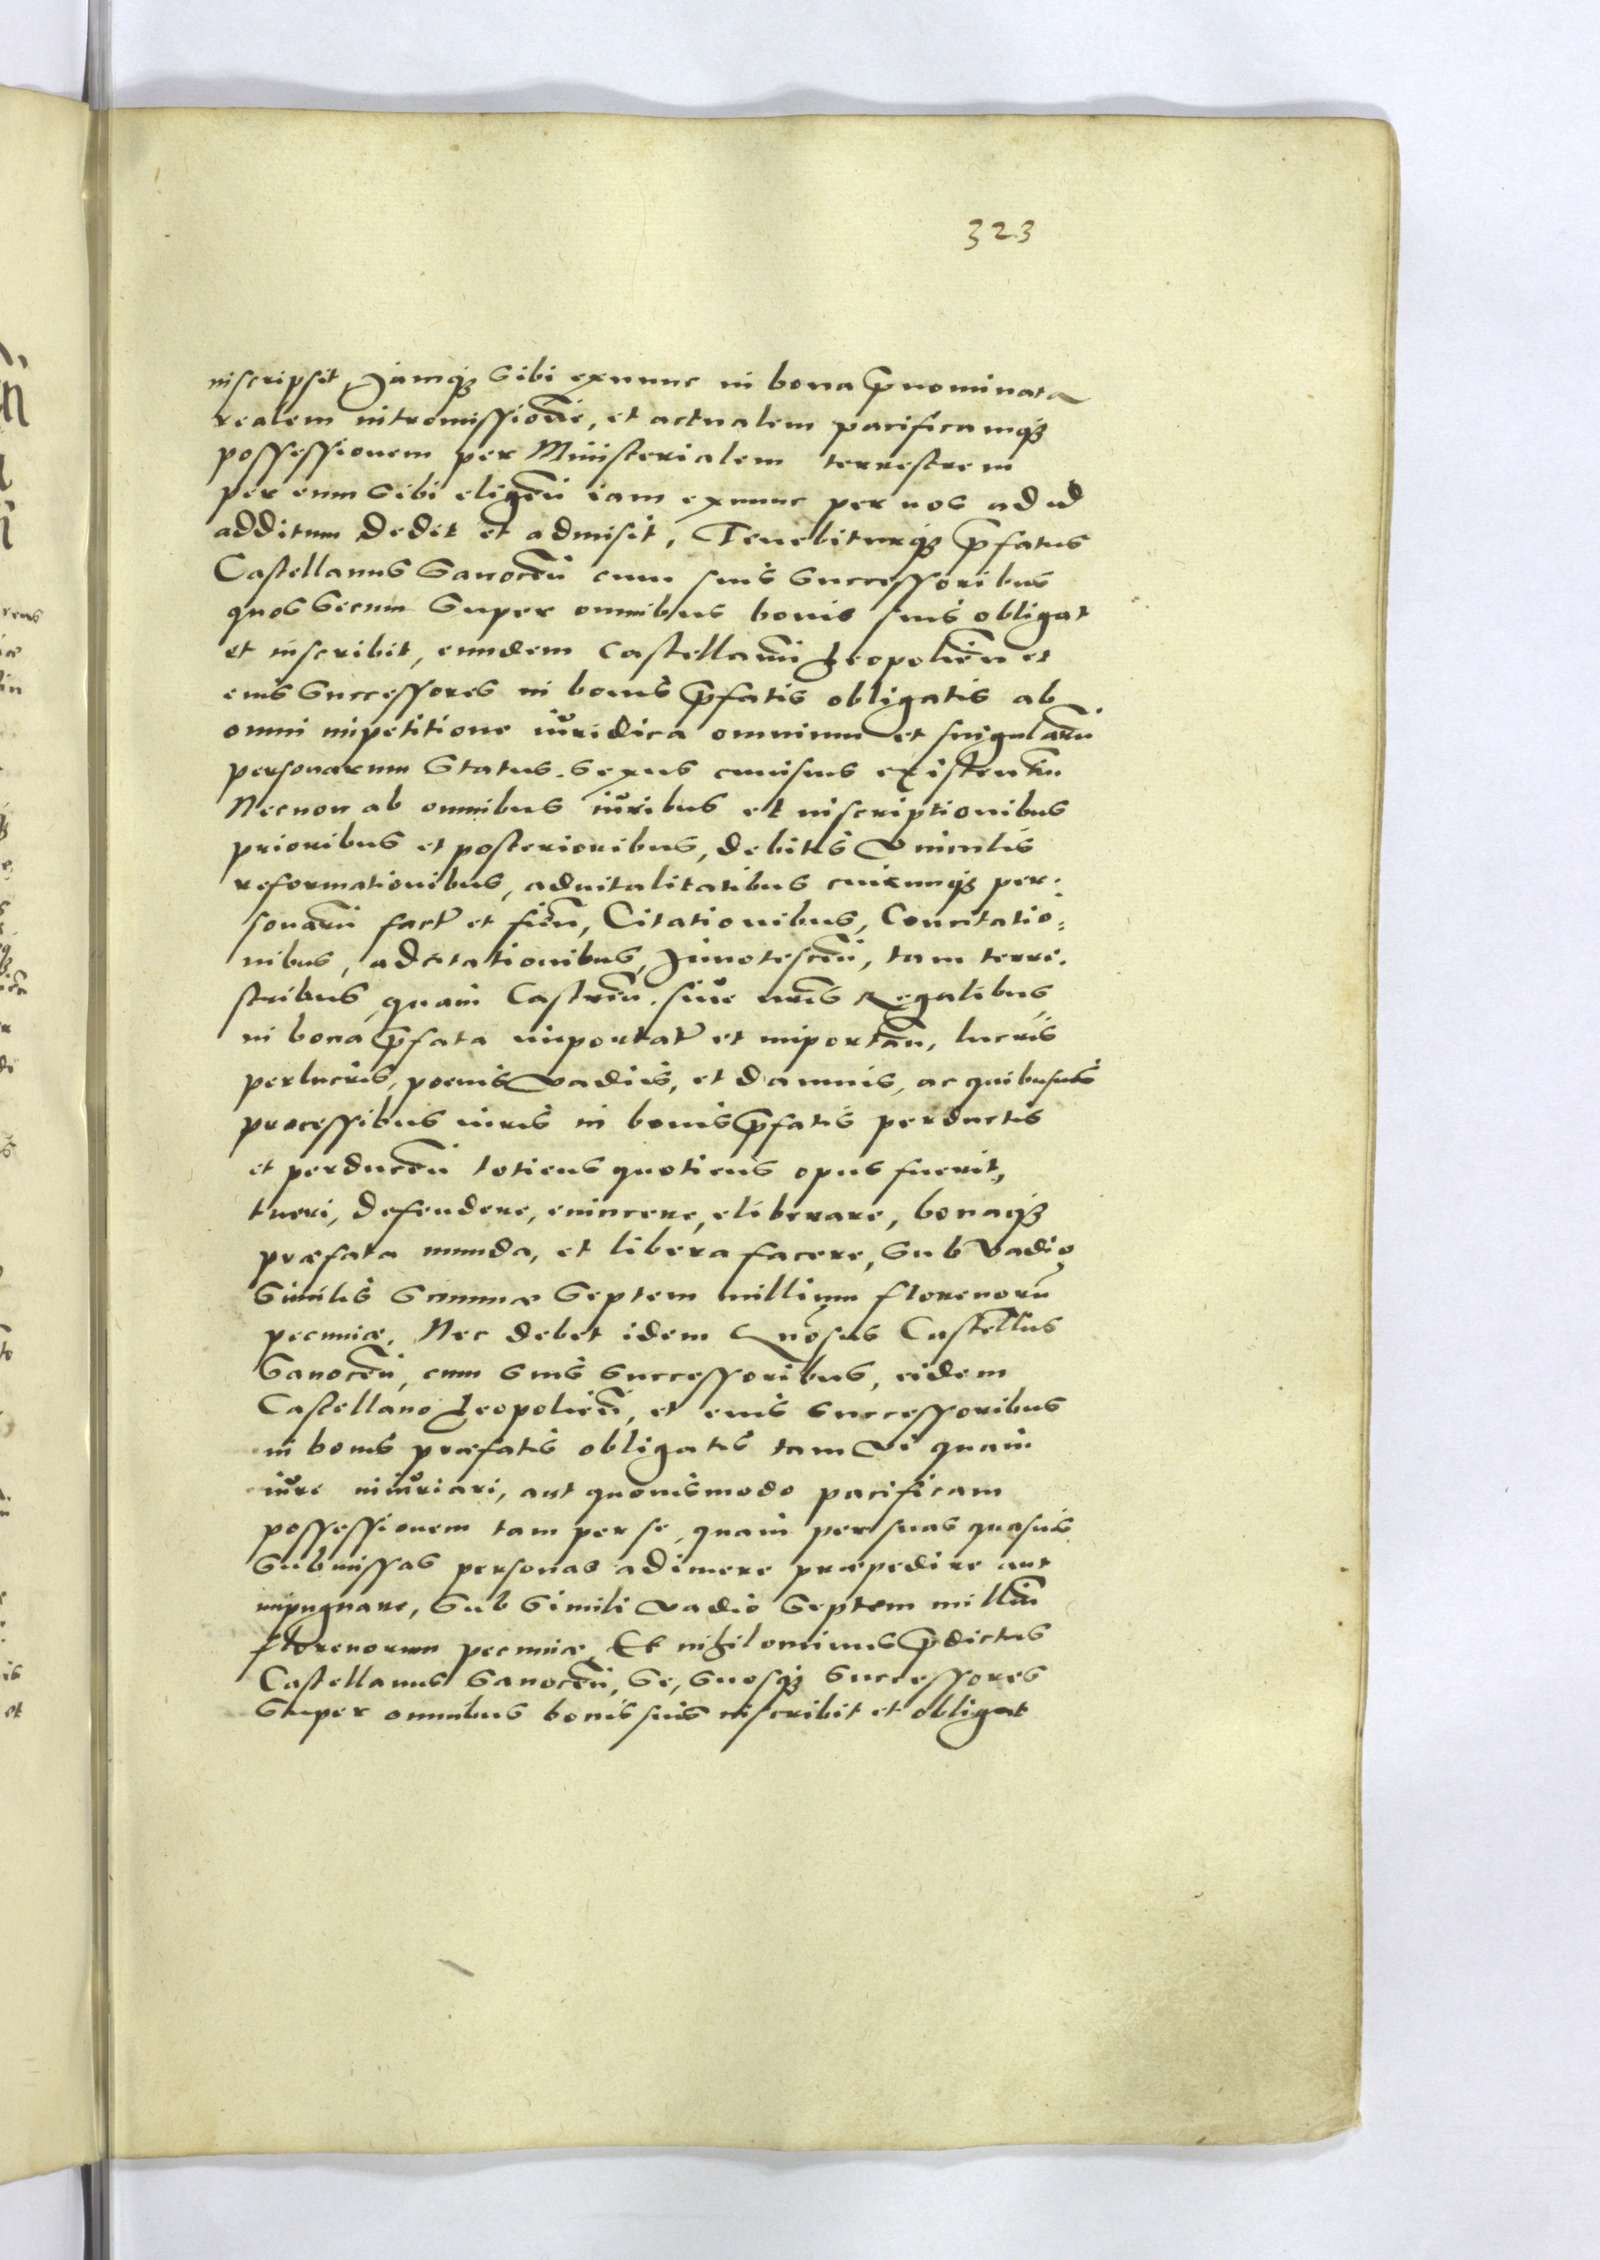 323
inscripsit, Jamq3 sibi exnunc in bona p̄nominata
realem intromissionē, et actualem pacificamq3
possessionem per Ministerialem terrestrem
per eum sibi eligēn iam exnunc per nos ad id
additum dedit et admisit, Tenebiturq3 p̄fatus
Castellanus Sanocēn cum suis successoribus
quos secum super omnibus bonis suis obligat
et inscribit, eundem Castellanū Leopoliēn et
eius successores in bonis p̄fatis obligatis ab
omni impetitione iuridica omnium et singularū
personarum status. sexus cuiusuis existentiū
Necnon ab omnibus iuribus et inscriptionibus
prioribus et posterioribus, debitis vinculis
reformationibus, aduitalitatibus cuicunq3 per.
sonarū fact̄ et fiēn, Citationibus, Concitatio:
nibus, adcitationibus, Jnnotescēn, tam terre.
stribus, quam Castrēn. siue nr̄is Regalibus,
in bona p̄fata importat̄ et importān, lucris
perlucris, poenis vadijs, et damnis, ac quibusuis
processibus iuris in bonis p̄fatis perductis
et perducēn totiens quotiens opus fuerit,
tueri, defendere, euincere, eliberare, bonaq3
præfata munda, et libera facere, sub vadio
similis summæ septem millium florenorū
pecuniæ. Nec debet idem Gn̄osus Castellūs
Sanocēn, cum suis successoribus, eidem
Castellano Leopoliēn, et eius successoribus
in bonis præfatis obligatis tam vi quam
iure iniuriari, aut quouismodo pacificam
possessionem tam per se, quam per suas quasuis
submissas personas adimere præpedire aut
impugnare, sub simili vadio septem milliū
florenorum pecuniæ, Et nihilominus p̄dictus
Castellanus Sanocēn, se, suosq3 successores
super omnibus bonis suis inscribit et obligat